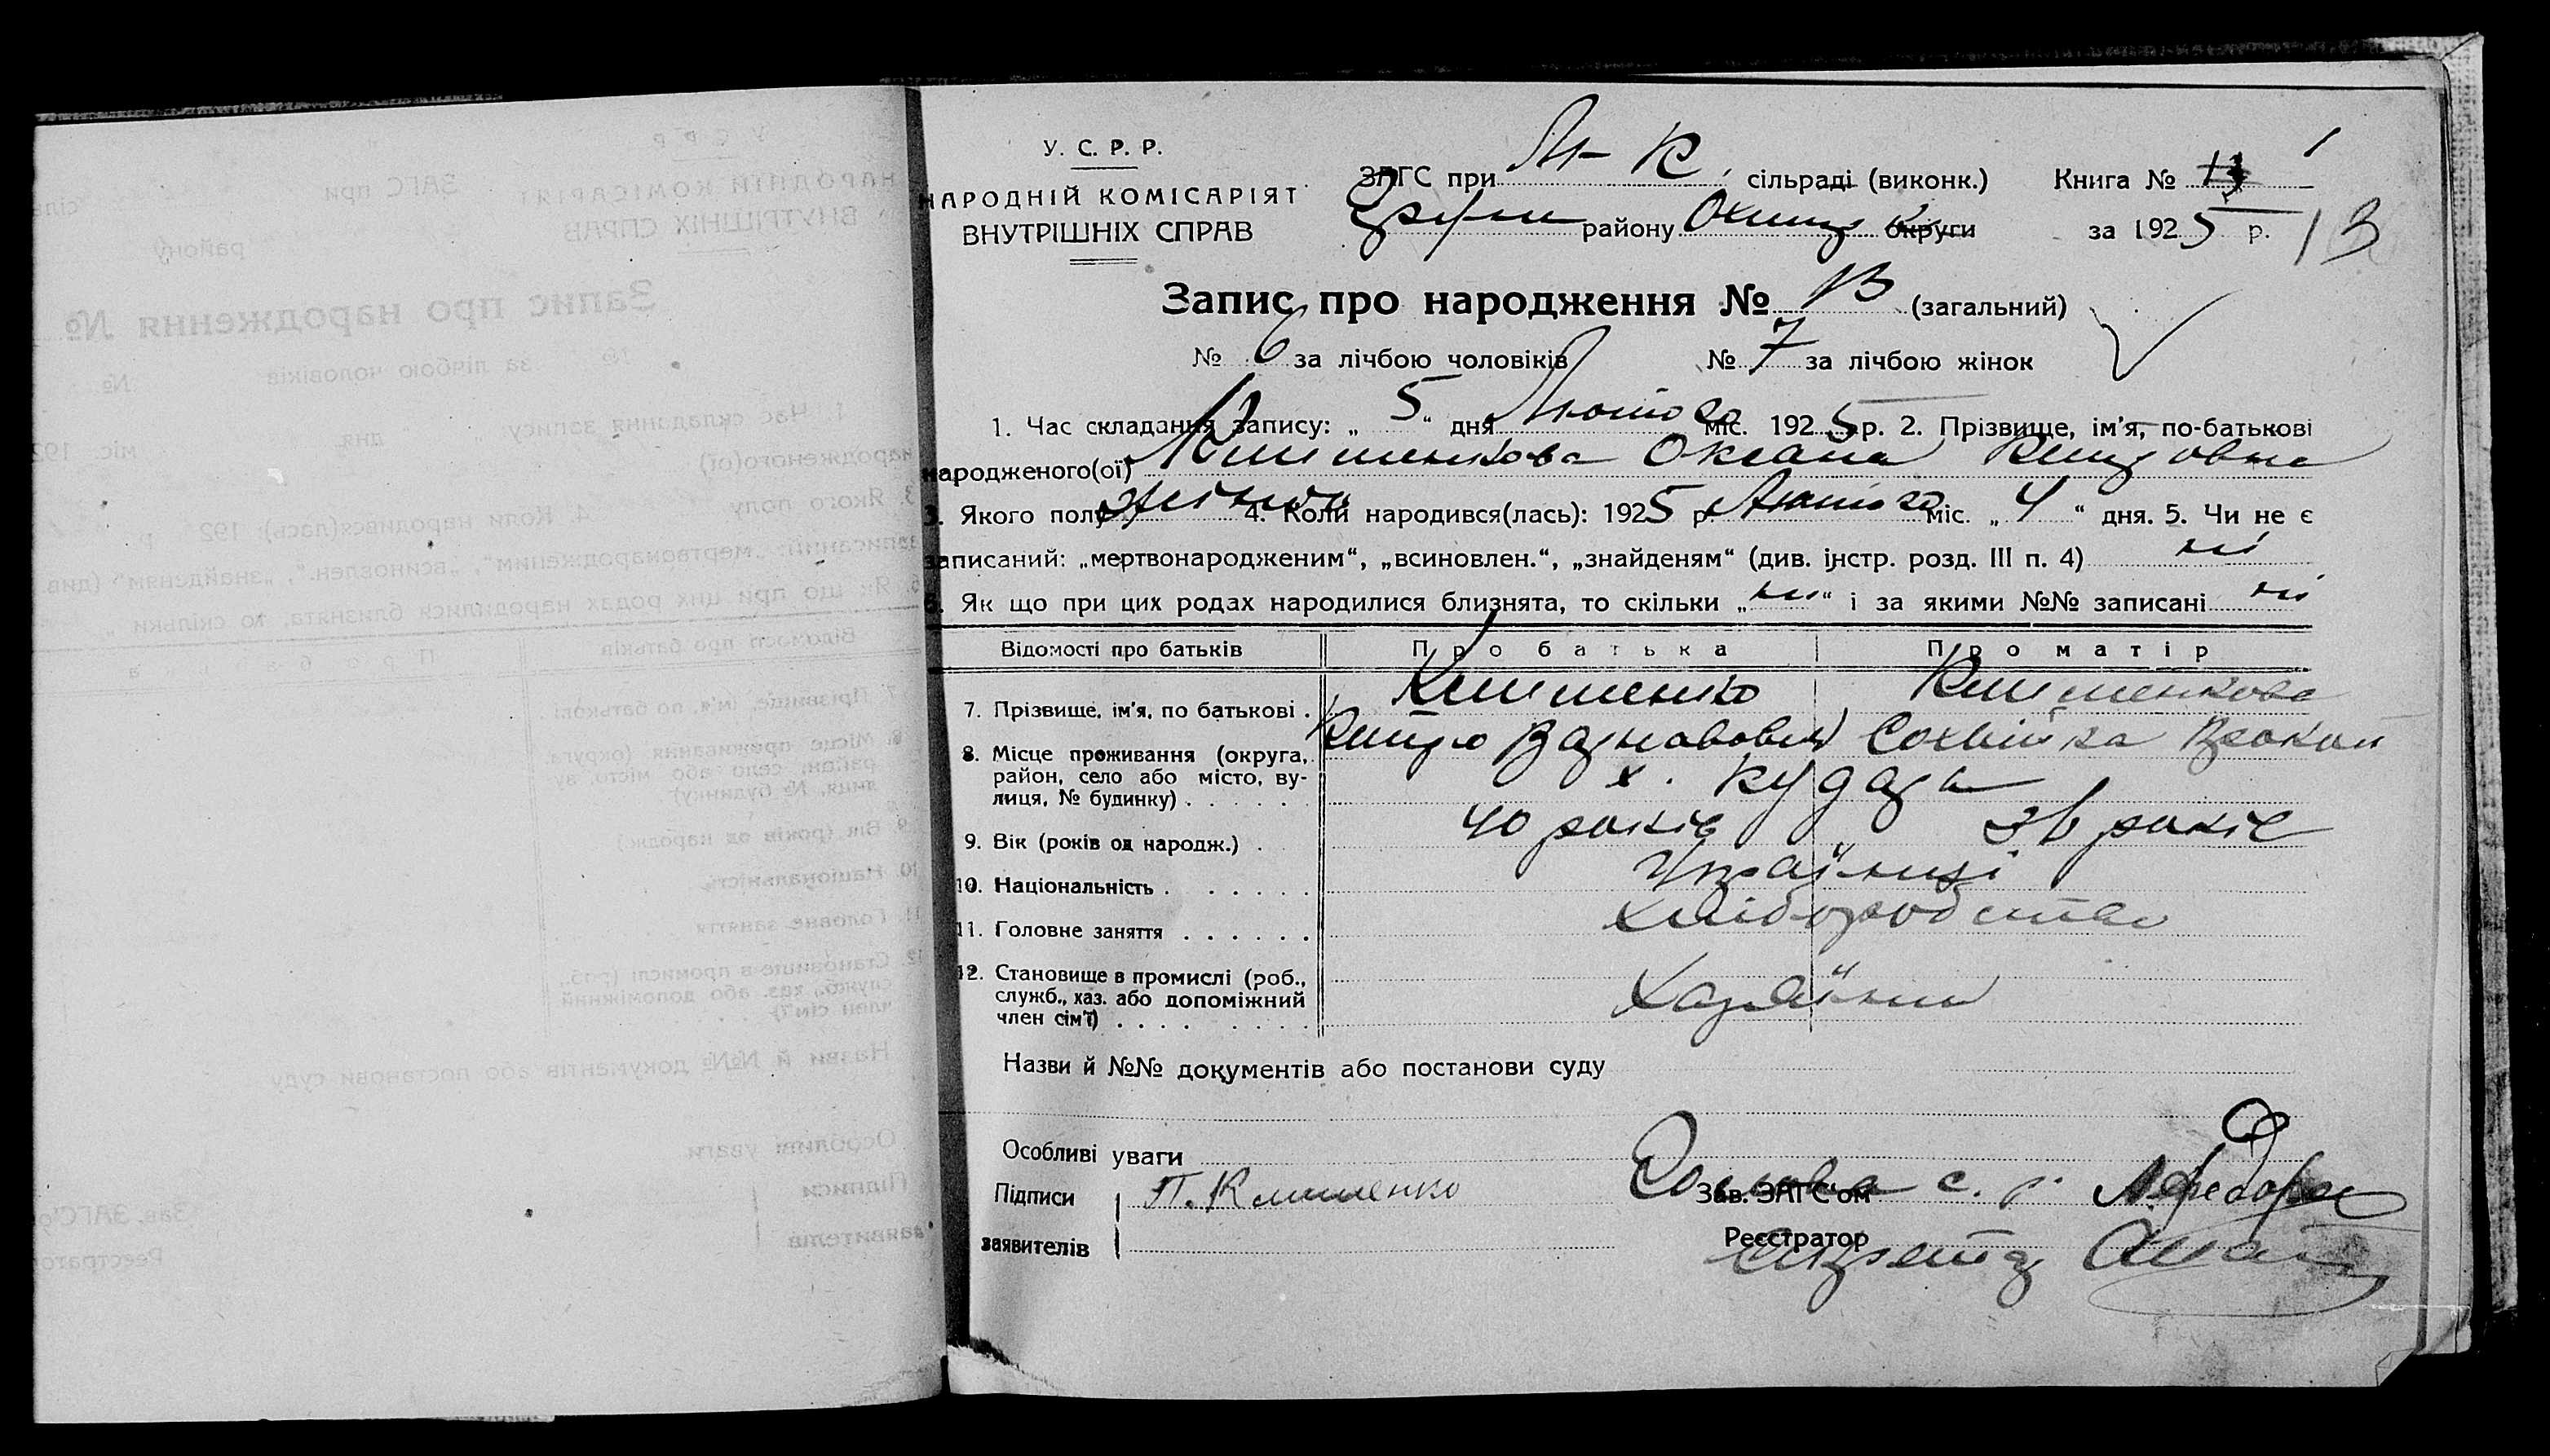 У. С. Р. Р.
НАРОДНІЙ КОМІСАРІЯТ
ВНУТРІШНІХ СПРАВ
ЗАГС при М-К сільраді (виконк.) Книга № 1
району округи за 1925 р. 13
Запис про народження № 13 (загальний)
№ 6 за лічбою чоловіків № 7 за лічбою жінок
1. Час складання запису: „ 5 “ дня Лютого міс. 1925 р. 2. Прізвище, ім'я, по-батькові
народженого(ої) Клименкова Оксана
3. Якого полу жіночо 4. Коли народився(лась): 1925 р. Лютого міс. „ 4 “ дня. 5. Чи не є
записаний: „мертвонародженим“, „всиновлен.“, „знайденям“ (див. інстр. розд. III п. 4) ні
6. Як що при цих родах народилися близнята, то скільки „ ні “ і за якими №№ записані ні
Відомості про батьків Про батька Про матір
7. Прізвище, ім'я, по батькові . Клименко Клименкова
8. Місце проживання (округа, район, село або місто, вулиця, № будинку) . . . . . . х.
9. Вік (років од народж.) . 40 років 36 років
10. Національність . . . . . . Українці
11. Головне заняття . . . . . . хліборобство
12. Становище в промислі (роб., служб., хаз. або допоміжний член сім'ї) . . . . . . . . Хазяїни
Назви й №№ документів або постанови суду
Особливі уваги
Підписи П. Клименко Зав. ЗАГС'ом Голова с. р.
заявителів Реєстратор